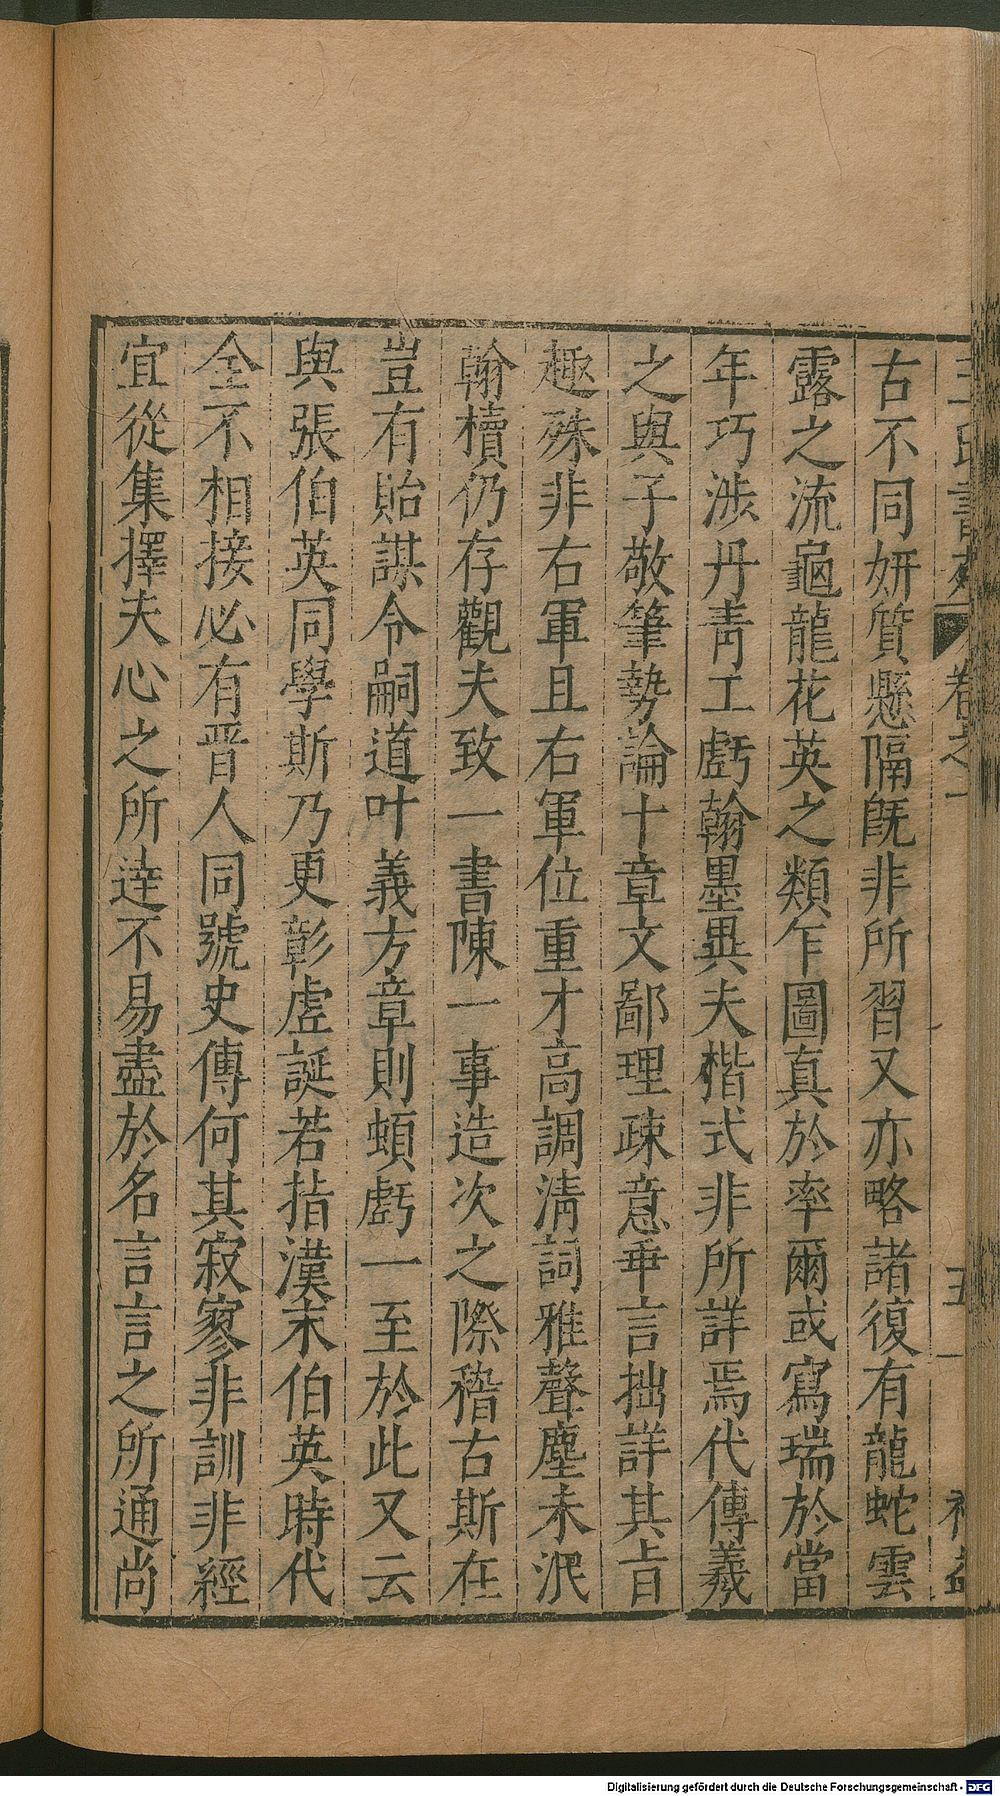 王氏書苑 卷之一 五
古不同妍質懸隔旣非所習又亦略諸復有龍蛇雲
露之流龜龍花英之類乍圖真於率爾或寫瑞於當
年巧涉丹靑工虧翰墨異夫楷式非所詳焉代傳羲
之與子敬筆勢論十章文鄙理疎意乖言拙詳其旨
趣殊非右軍且右軍位重才高調淸詞雅聲塵未泯
翰櫝仍存觀夫致一書陳一事造次之際稽古斯在
豈有貽謀令嗣道叶義方章則頓虧一至於此又云
與張伯英同學斯乃更彰虛誕若指漢末伯英時代
全不相接必有晋人同號史傳何其寂寥非訓非經
宜從集擇夫心之所達不易盡於名言言之所通尚
Digitalisierung gefördert durch die Deutsche Forschungsgemeinschaft - DFG